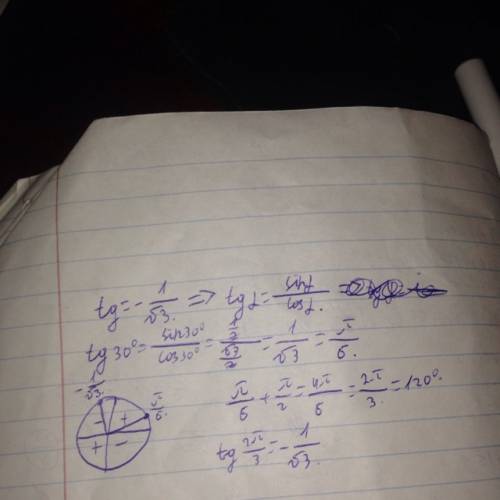 tg = - 1/√3. => tg α = sin α / cos α. =
tg 30° = sin 30° / cos 30° = 1/2 / √3/2 = 1/√3 = π/6.
- 1/√3. π/6. - + + -
π/6 + π/2 = 4π/6 = 2π/3 = 120°.
tg 2π/3 = - 1/√3.